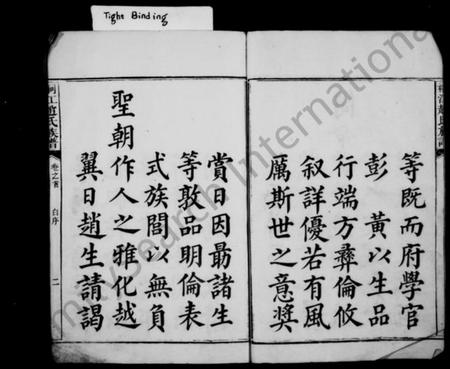 Tight Binding
等既而府學官
彭 黃以生品
行端方彝倫攸
叙詳優若有風
厲斯世之意獎
賞日因勗諸生
等敦品明倫表
式族閭以無負
聖朝作人之雅化越
翼日趙生請謁
江趙氏族譜
卷之首
自序
二